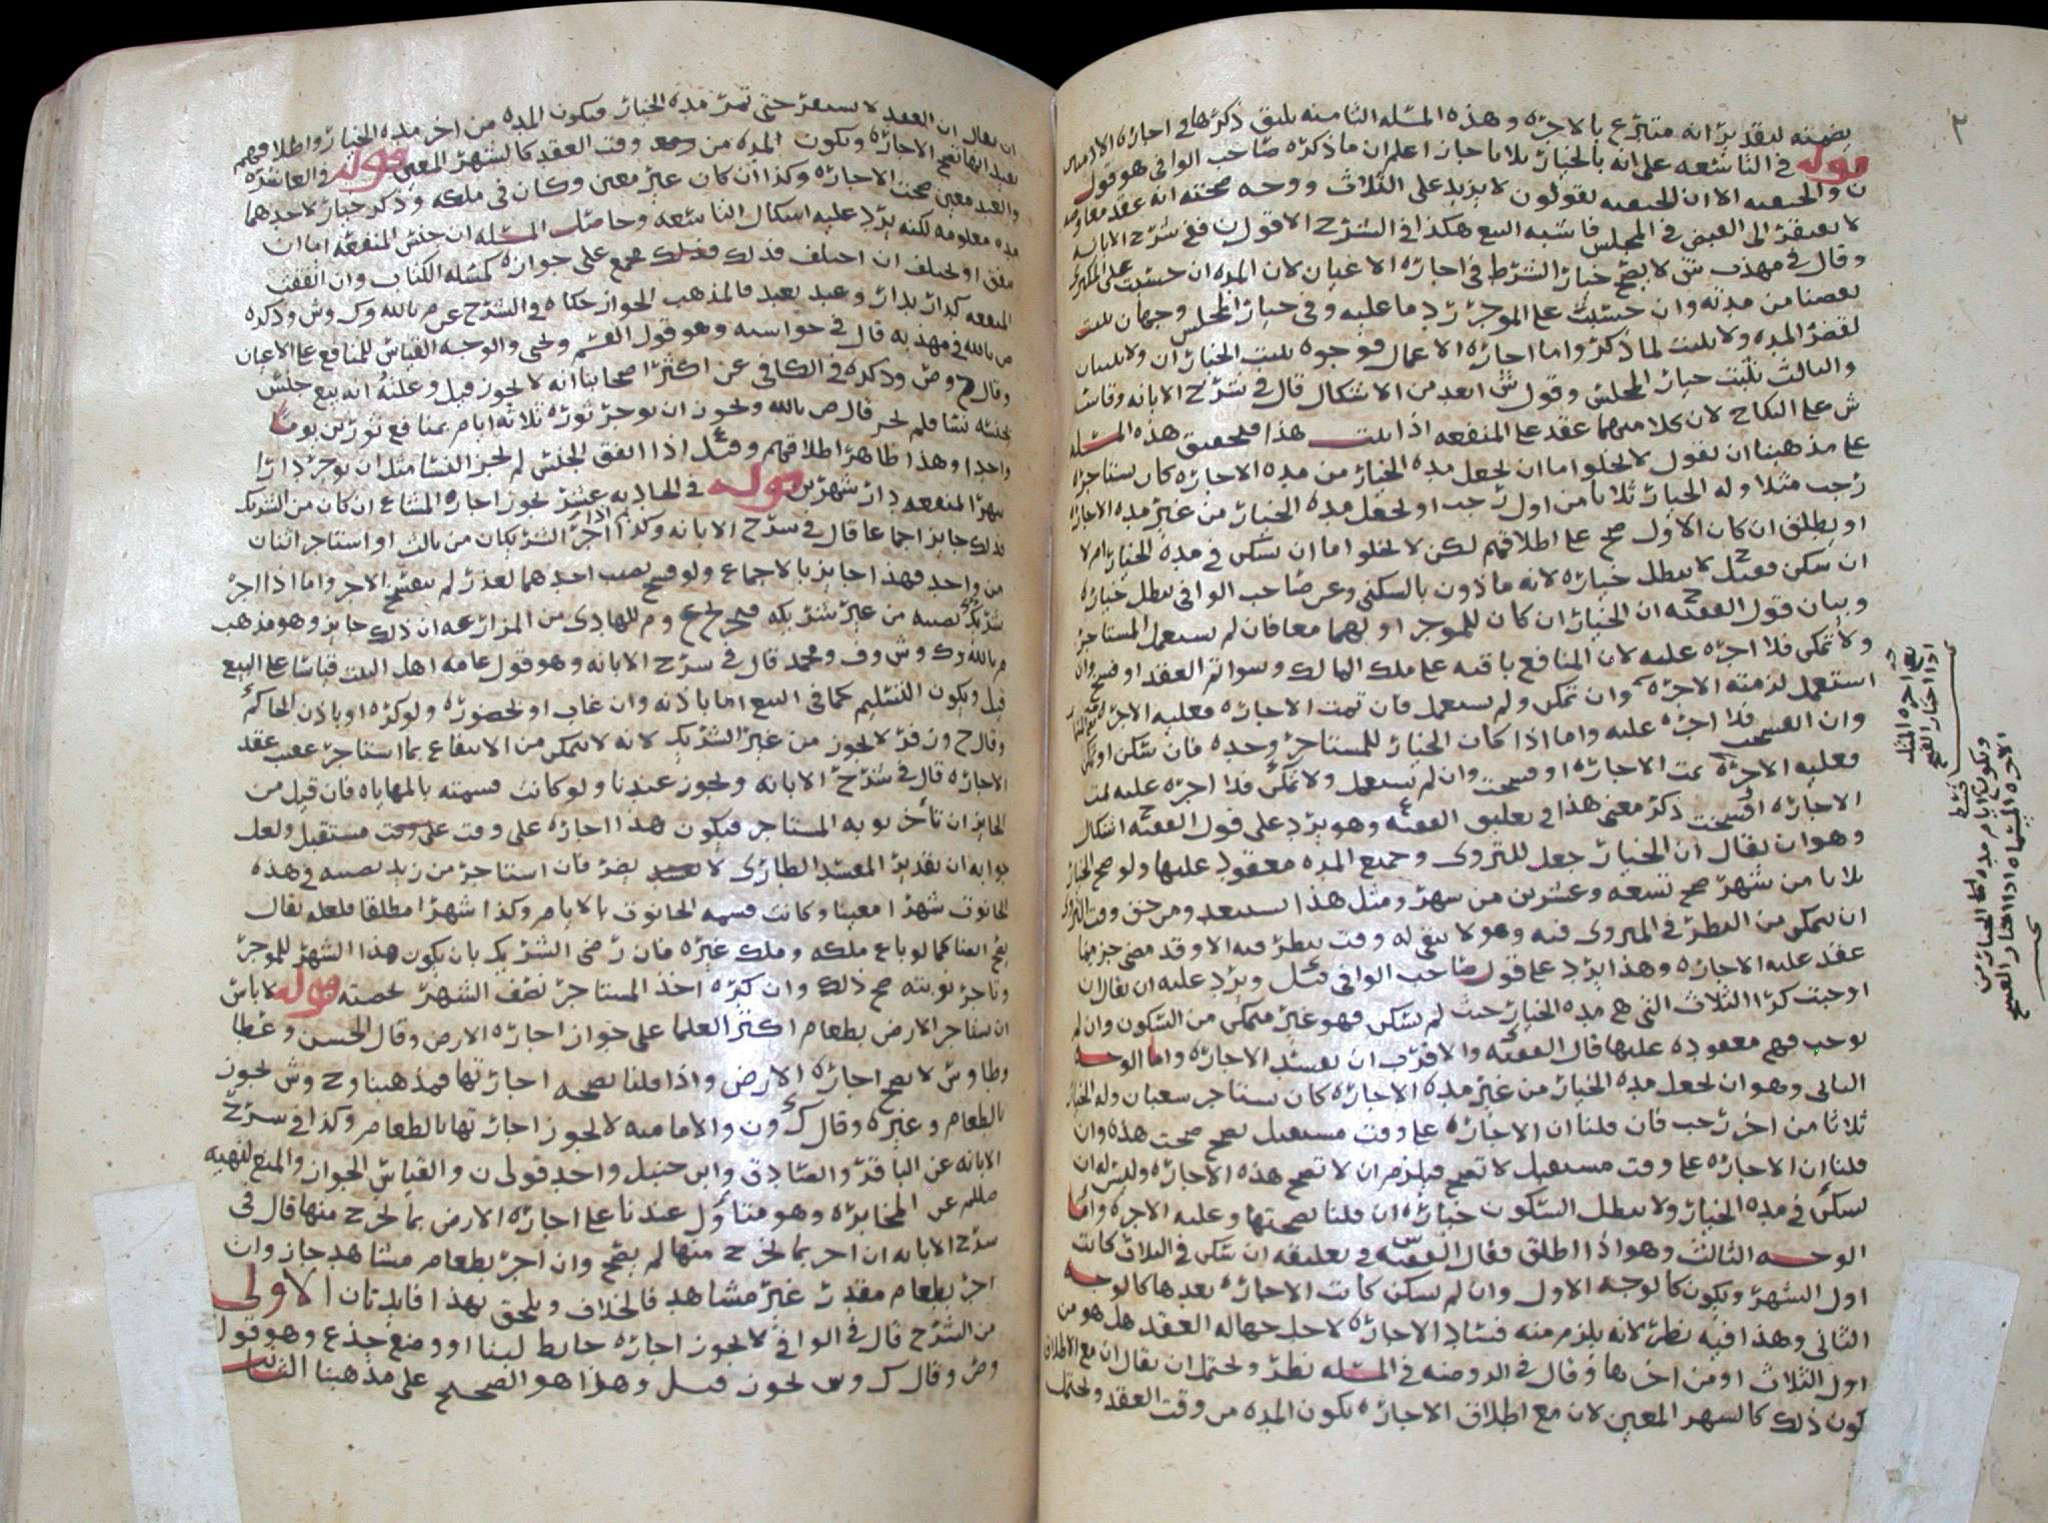 بضمنه لتقدير انه متبرع بالاجره وهذه المسئله الثامنه يليق ذكرها في اجاره الادميين
قوله في التاسعه على انه بالخيار ثلاثا جاز اعلم ان ما ذكره صاحب الوافي هو قول
ن والحنفيه الا ان الحنفيه يقولون لا يزيد على الثلاث ووجه صحته انه عقد معاوضه
لا يفتقر الى القبض في المجلس فاشبه البيع هكذا في الشرح الاقول ن ففي شرح الابانه
وقال في مهذب ش لا يصح خيار الشرط في اجاره الاعيان لان المده ان حسبت على المكتري
نقصنا من مدته وان حسبت على الموجر زد ما عليه وفي خيار المجلس وجهان يثبت
لقصر المده ولا يثبت لما ذكر واما اجاره الاعمال فوجوه يثبت الخياران ولا يثبتان
والثالث يثبت خيار المجلس وقول ش ابعد من الاشكال قال في شرح الابانه وقاس
ش على النكاح لان كلا منهما عقد على المنفعه اذا ثبت هذا فلتحقيق هذه المسئله
على مذهبنا ان نقول لا يخلو اما ان يجعل مده الخيار من مده الاجاره كان يستاجره
رجب مثلا وله الخيار ثلاثا من اول رجب او يجعل مده الخيار من غير مده الاجاره
او يطلق ان كان الاول صح على اطلاقهم لكن لا يخلو اما ان يسكن في مده الخيار ام لا
ان سكن فقيل لا يبطل خياره لانه ماذون بالسكنى وعن صاحب الوافي يبطل خياره
وبيان قول الفقيه ان الخيار ان كان للموجر او لهما معا فان لم يستعمل المستاجر
ولا تمكن فلا اجره عليه لان المنافع باقيه على ملك المالك وسوا تم العقد او فسخ وان
استعمل لزمته الاجره وان تمكن ولم يستعمل فان تمت الاجاره فعليه الاجره
وان انفسخت فلا اجره عليه واما اذا كان الخيار للمستاجر وحده فان سكن او تمكن
فعليه الاجره تمت الاجاره او فسخت وان لم يستعمل ولا تمكن فلا اجره عليه تمت
الاجاره او فسخت ذكر معنى هذا في تعليق الفقيه وهو يرد على قول الفقيه اشكال
وهو ان يقال ان الخيار جعل للتروي وجميع المده معقود عليها ولو صح الخيار
ثلاثا من شهر صح تسعه وعشرين من شهر ومثل هذا يستبعد ومن حق وقت التروي
ان يتمكن من النظر في المتروى فيه وهو لا يبقى له وقت ينظر فيه الا وقد مضى جز مما
عقد عليه الاجاره وهذا يرد على قول صاحب الوافي قيل ويرد عليه ان يقال ان
اوجبت كرا الثلاث التي هي مده الخيار حيث لم يسكن فهو غير متمكن من السكون وان لم
توجب فهي معقوده عليها قال الفقيه والاقرب ان تفسد الاجاره واما الوجه
الثاني وهو ان يجعل مده الخيار من غير مده الاجاره كان يستاجر شعبان وله الخيار
ثلاثا من اخر رجب فان قلنا ان الاجاره على وقت مستقبل تصح صحت هذه وان
قلنا ان الاجاره على وقت مستقبل لا تصح فيلزم ان لا تصح هذه الاجاره وليس له ان
يسكن في مده الخيار ولا يبطل السكون خياره ان قلنا بصحتها وعليه الاجره واما
الوجه الثالث وهو اذا اطلق فقال الفقيه في تعليقه ان سكن في الثلاث كانت
اول الشهر ويكون كالوجه الاول وان لم يسكن كانت الاجاره بعدها كالوجه
الثاني وهذا فيه نظر لانه يلزم منه فساد الاجاره لاجل جهاله العقد هل هو من
اول الثلاث او من اخرها وقال في الروضه في المسئله نظر ويحتمل ان يقال ان مع الاطلاق
يكون ذلك كالشهر المعين لان مع اطلاق الاجاره يكون المده من وقت العقد ويحتمل
اذا اختار الفسخ
اجره المثل
ويكون ايام مده الخيار من
الاجره المسماه اذا اختار الفسخ
ان يقال ان العقد لا يستقر حتى تمر مده الخيار فيكون المده من اخر مده الخيار واطلاقهم
تصح الاجاره ويكون المده من وقت العقد كالشهر المعين قوله في العاشره
والعبد معين صحت الاجاره وكذا ان كان غير معين وكان في ملكه وذكر خيار لاحدهما
مده معلومه لكنه يرد عليه اشكال التاسعه وحاصل المسئله ان جنس المنفعه اما ان
يتفق او يختلف ان اختلف فذلك مجمع على جوازه كمسئله الكتاب وان اتفقت
المنفعه كدار بدار وعبد بعبد فالمذهب الجواز حكاه في الشرح عن م بالله وك وش وذكره
ص بالله في مهذبه قال في حواشيه وهو قول القسم ويحيى والوجه القياس للمنافع على الاعيان
وقال ح وص وذكره في الكافي عن اكثر اصحابنا انه لا يجوز قيل وعلته انه بيع جنس
بجنسه نسا فلم يجز قال ص بالله ويجوز ان يوجر ثوره ثلاثه ايام بمنافع ثورين يوما
واحدا وهذا ظاهر اطلاقهم وقيل اذا اتفق الجنس لم يجز النسا مثل ان يوجر دارا
شهرا لمنفعه دار شهرين قوله في الحاديه عشر يجوز اجاره المشاع ان كان من الشريك
فذلك جايز اجماعا قال في شرح الابانه وكذا اذا اجر الشريكان من ثالث او استاجر اثنان
من واحد فهذا جايز بالاجماع ولو فسخ نصيب احدهما لعذر لم ينفسخ الاخر واما اذا اجر
شريك نصيبه من غير شريكه فخرج ع وم للهادي من المزارعه ان ذلك جايز وهو مذهب
م بالله وك وش وف ومحمد قال في شرح الابانه وهو قول عامه اهل البيت قياسا على البيع
قيل ويكون التسليم كما في البيع اما باذنه وان غاب او بحضوره ولو كره او باذن الحاكم
وقال ح وزفر لا يجوز من غير الشريك لانه لا يتمكن من الانتفاع بما استاجر عقيب عقد
الاجاره قال في شرح الابانه ويجوز عندنا ولو كانت قسمته بالمهاياه فان قيل من
الجايز ان تاخر نوبه المستاجر فيكون هذا اجاره على وقت مستقبل ولعل
جوابه ان تقدير المفسد الطاري لا يضر فان استاجر من زيد نصيبه في هذه
الحانوت شهرا معينا وكانت قسمه الحانوت بالايام وكذا شهرا مطلقا فلعله يقال
يصح هنا كما لو باع ملكه وملك غيره فان رضي الشريك بان يكون هذا الشهر للموجر
وتاخر نوبته صح ذلك وان كره اخذ المستاجر نصف الشهر بحصته قوله لا باس
ان يستاجر الارض بطعام اكثر العلما على جواز اجاره الارض وقال الحسن وعطا
وطاوس لا يصح اجاره الارض واذا قلنا بصحه اجارتها فمذهبنا وح وش يجوز
بالطعام وغيره وقال ك ون والاماميه لا يجوز اجارتها بالطعام وكذا في شرح
الابانه عن الباقر والصادق وابن حنبل واحد قولي ن والقياس الجواز والمنع لنهيه
صللم عن المخابره وهو متاول عندنا على اجاره الارض بما يخرج منها قال في
شرح الابانه ان اجر بما يخرج منها لم يصح وان اجر بطعام مشاهد جاز وان
اجر بطعام مقدر غير مشاهد فالخلاف ويلحق بهذا فايدتان الاولى
من الشرح قال في الوافي لا يجوز اجاره حايط لبنا او وضع جذع وهو قول
وص وقال ك وش يجوز قيل وهذا هو الصحيح على مذهبنا الثانيه